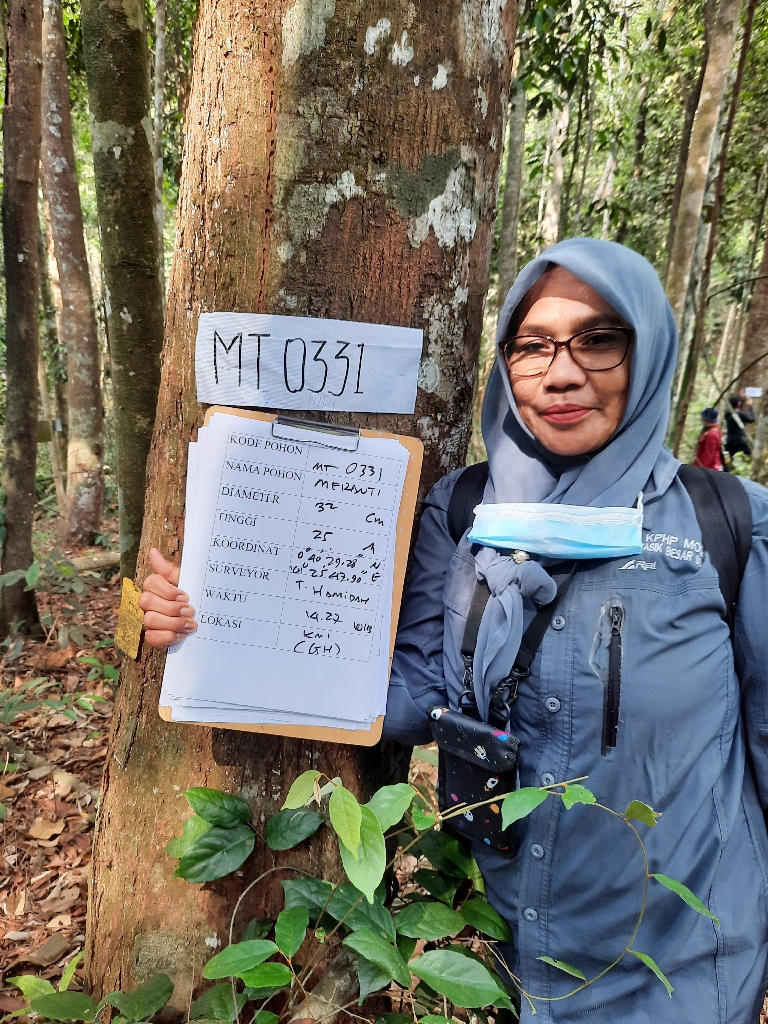 MT 0331
KODE POHON MT 0331
NAMA POHON MERANTI
DIAMETER 32 Cm
TINGGI 25 M
KOORDINAT 0° 40' 29,78" N
0° 25' 47,90" E
SURVEYOR T. HAMIDAH
WAKTU 14.27 WIB
LOKASI KM 1
(GH)
KPHP MO
ASIK BESAR
AREI